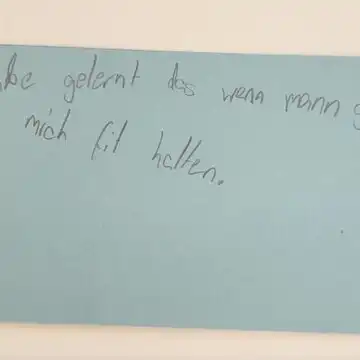 abe gelernt das wenn mann g
mich fit halten.